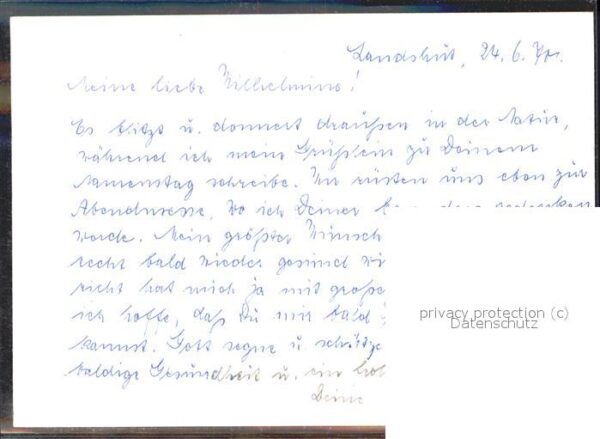 Landshut, 24. 6.
Meine liebe Wilhelmine!
Es blitzt u. donnert draußen in der Natur,
während ich mein Grüßlein zu Deinem
Namenstag schreibe. Wir rüsten uns eben zur
Abendmesse, wo ich Deiner
werde. Mein größter Wunsch
recht bald wieder gesund
richt hat mich ja mit große
ich hoffe, daß Du mir bald
kannst. Gott segne u. schütze
baldige Gesundheit u. ein
Deine
privacy protection (c)
Datenschutz